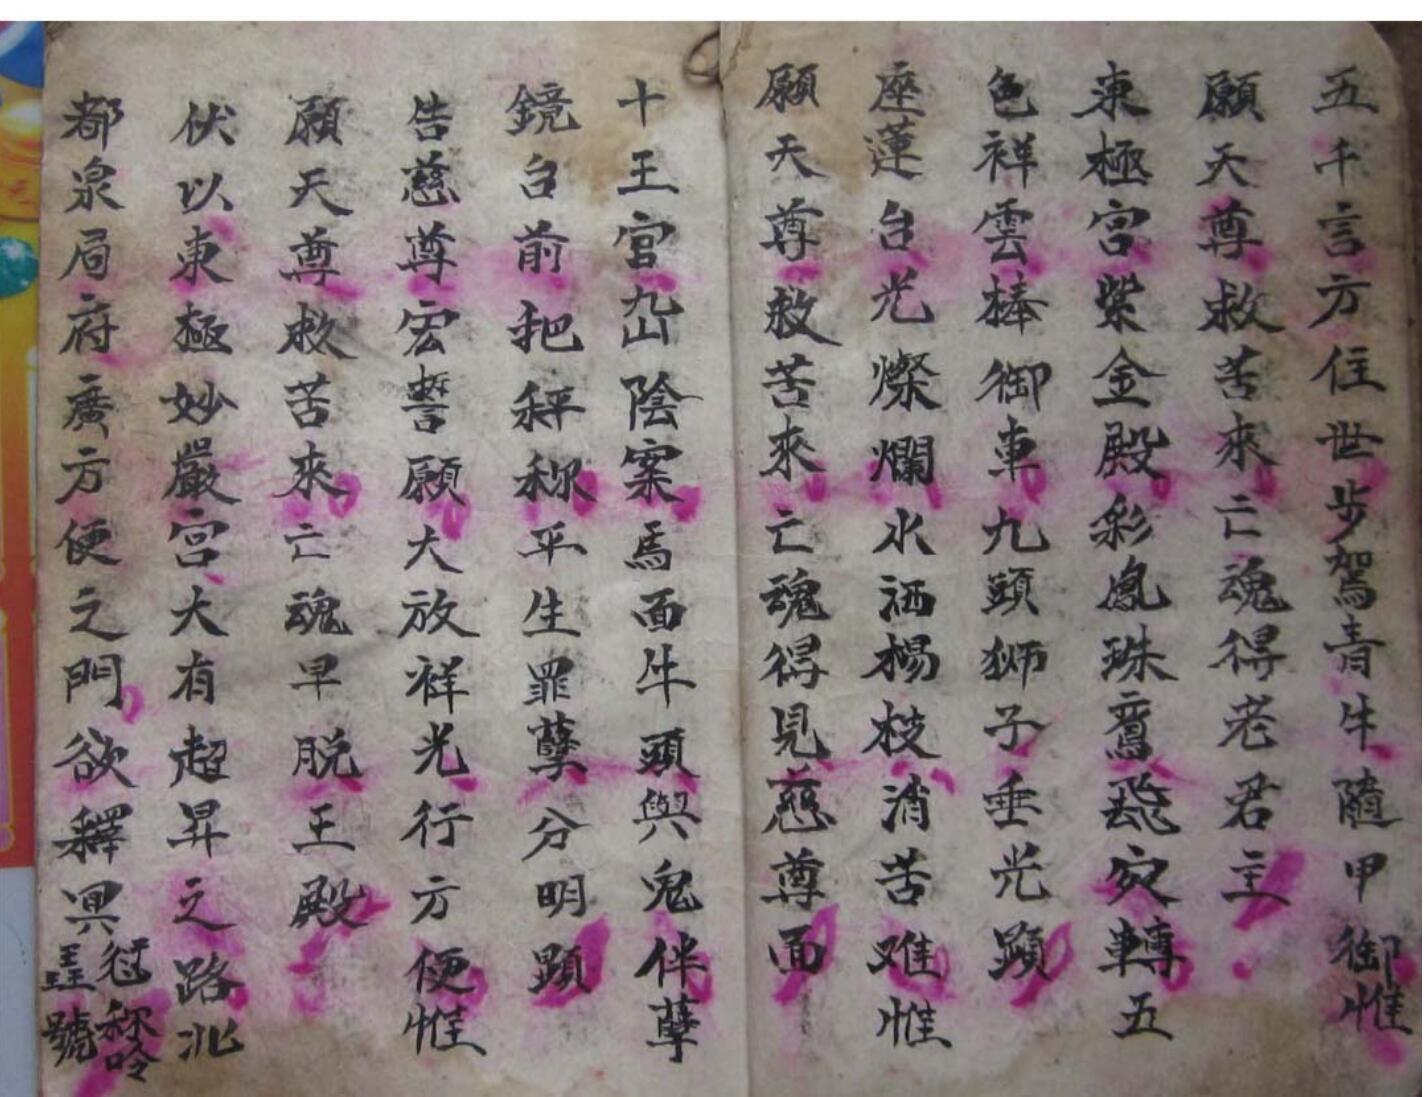 五千言方住世步駕青牛隨甲御惟
願天尊救苦來亡魂得老君主
東極宮紫金殿彩鳳珠鸞飛宛轉五
色祥雲棒御車九頭狮子垂光顕
座蓮台光燦爛水洒楊枝消苦难惟
願天尊救苦來亡魂得見慈尊面
十王宮陰案馬面牛頭與鬼伴孽
鏡台前把秤称平生罪孽分明顕
告慈尊宏誓願大放祥光行方便惟
願天尊救苦來亡魂早脱王殿
伏以東極妙嚴宮大有超昇之路北
都泉局府廣方便之門欲釋冥愆称吟
號